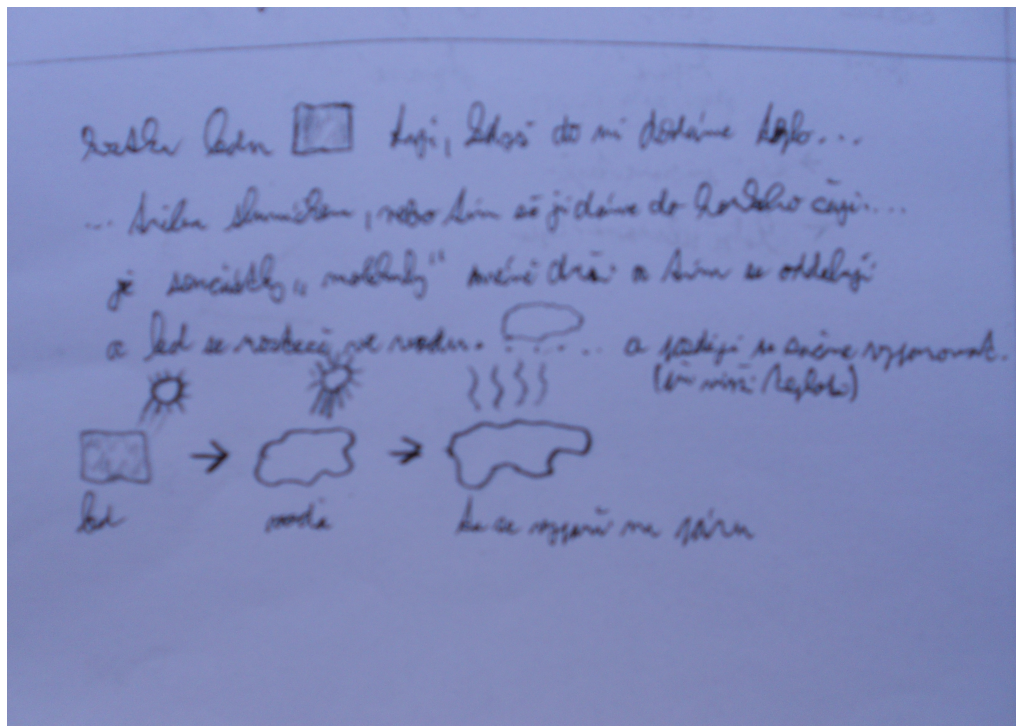 kostku ledu když do ní dodáme teplo...
... třeba sluníčkem, nebo tím že ji dáme do horkého čaje...
je součástky „molekuly" méně drží a tím se oddělují
a led se rozteče, ve vodu. ... a později se začne vypařovat.
(při vyšší teplotě)
led voda ta se vypaří na páru